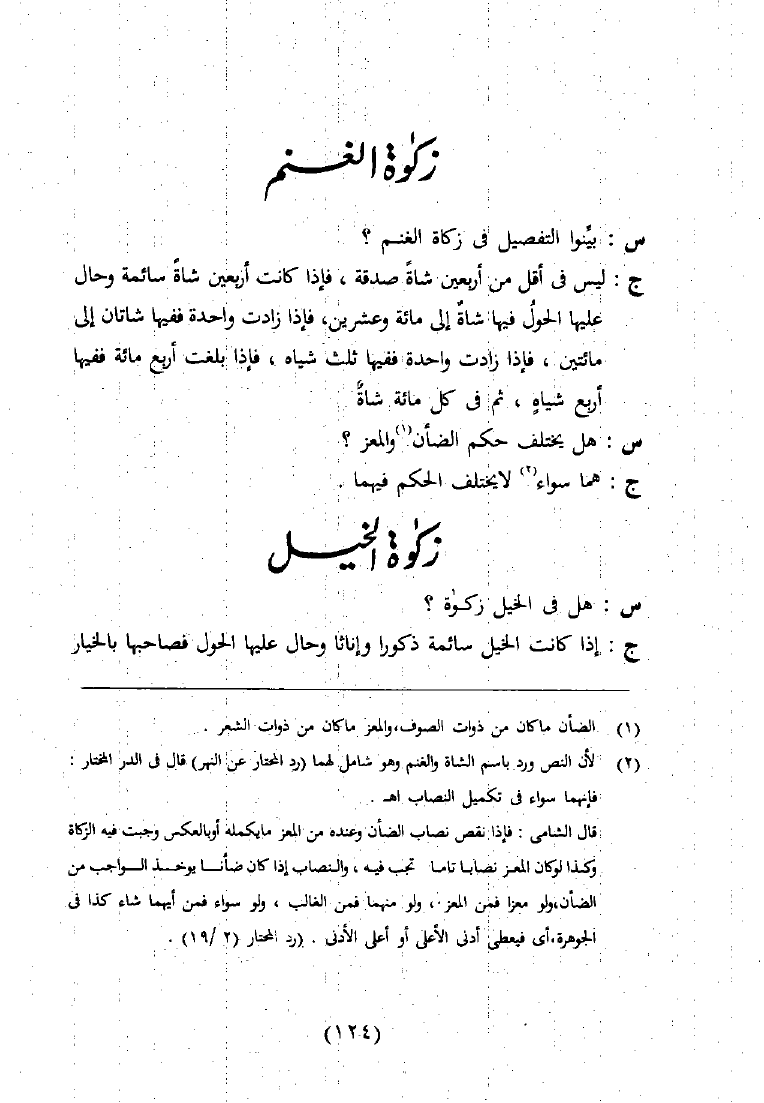 زكوٰة الغنم
س : بيِّنوا التفصيل فى زكاة الغنم ؟
ج : ليس فى أقل من أربعين شاةً صدقة ، فإذا كانت أربعين شاةً سائمة وحال
عليها الحولُ فيها شاةٌ إلى مائة وعشرين، فإذا زادت واحدة ففيها شاتان إلى
مائتين ، فإذا زادت واحدة ففيها ثلث شياه ، فإذا بلغت أربع مائة ففيها
أربع شياهٍ ، ثم فى كل مائة شاةٌ
س : هل يختلف حكم الضأن(١)والمعز ؟
ج : هما سواء(٢) لايختلف الحكم فيهما .
زكوٰة الخيل
س : هل فى الخيل زكوٰة ؟
ج : إذا كانت الخيل سائمة ذكورا وإناثا وحال عليها الحول فصاحبها بالخيار
(١) الضأن ماكان من ذوات الصوف،والمعز ماكان من ذوات الشعر .
(٢) لأن النص ورد باسم الشاة والغنم وهو شامل لهما (رد المحتار عن النهر) قال فى الدر المختار :
فإنهما سواء فى تكميل النصاب اهـ .
قال الشامى : فإذا نقص نصاب الضأن وعنده من المعز مايكمله أوبالعكس وجبت فيه الزكاة
وكذا لوكان المعز نصابا تاما تجب فيه ، والنصاب إذا كان ضأنا يوخذ الواجب من
الضأن،ولو معزا فمن المعز ، ولو منهما فمن الغالب ، ولو سواء فمن أيهما شاء كذا فى
الجوهرة،أى فيعطى أدنى الأعلى أو أعلى الأدنى . (رد المحتار (٢ /١٩) .
(١٢٤)